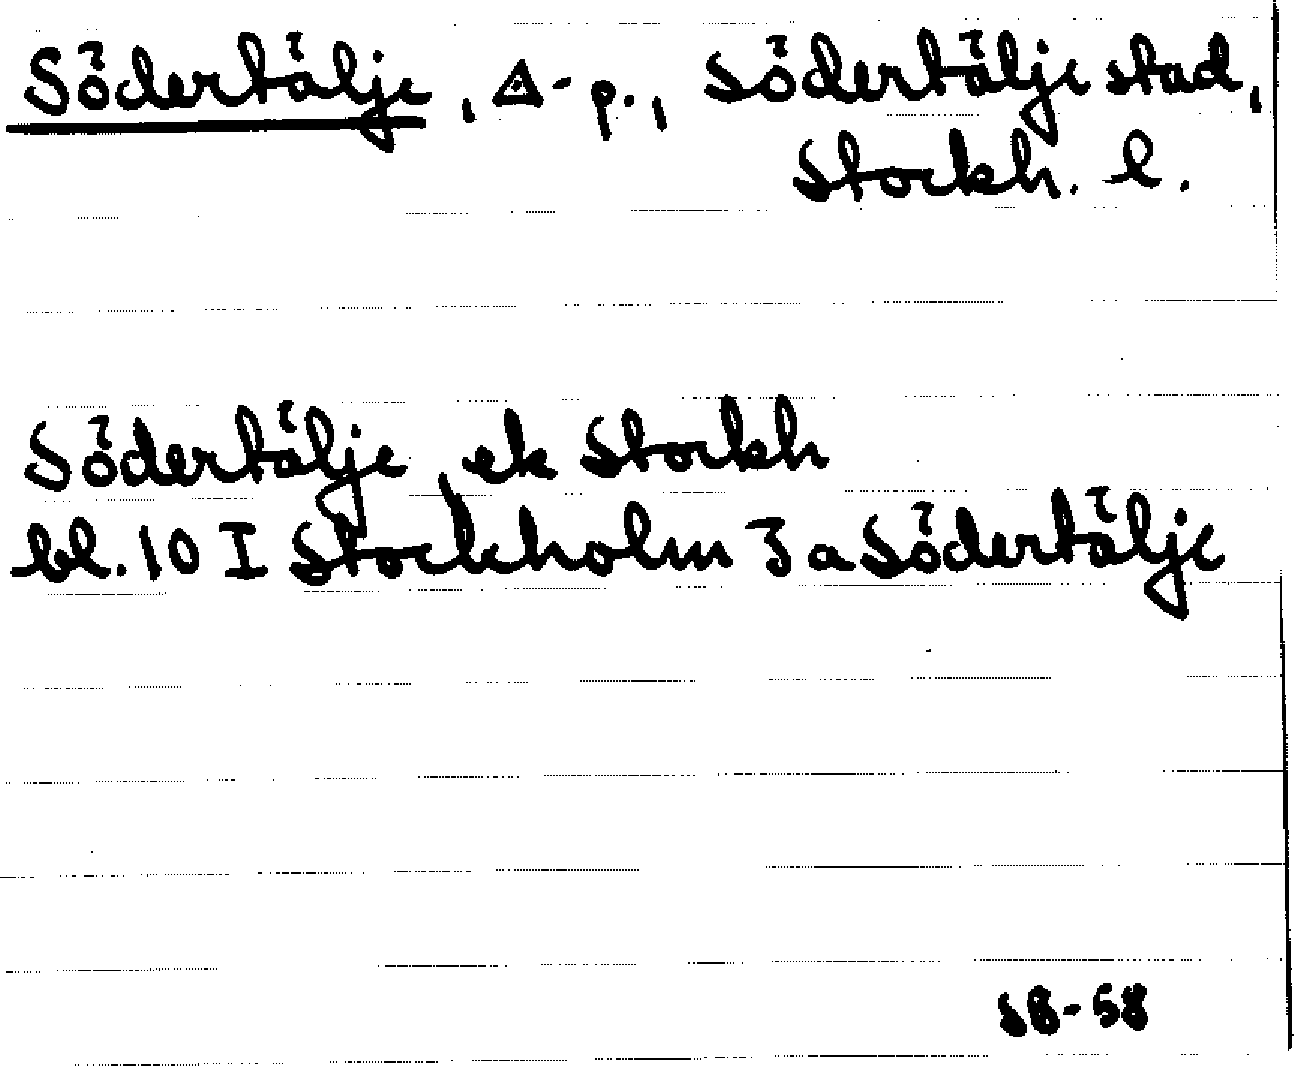 Södertälje, ◬-p., Södertälje stad,
Stockh. l.
Södertälje, ek Stockh
bl. 10 I Stockholm 3 a Södertälje